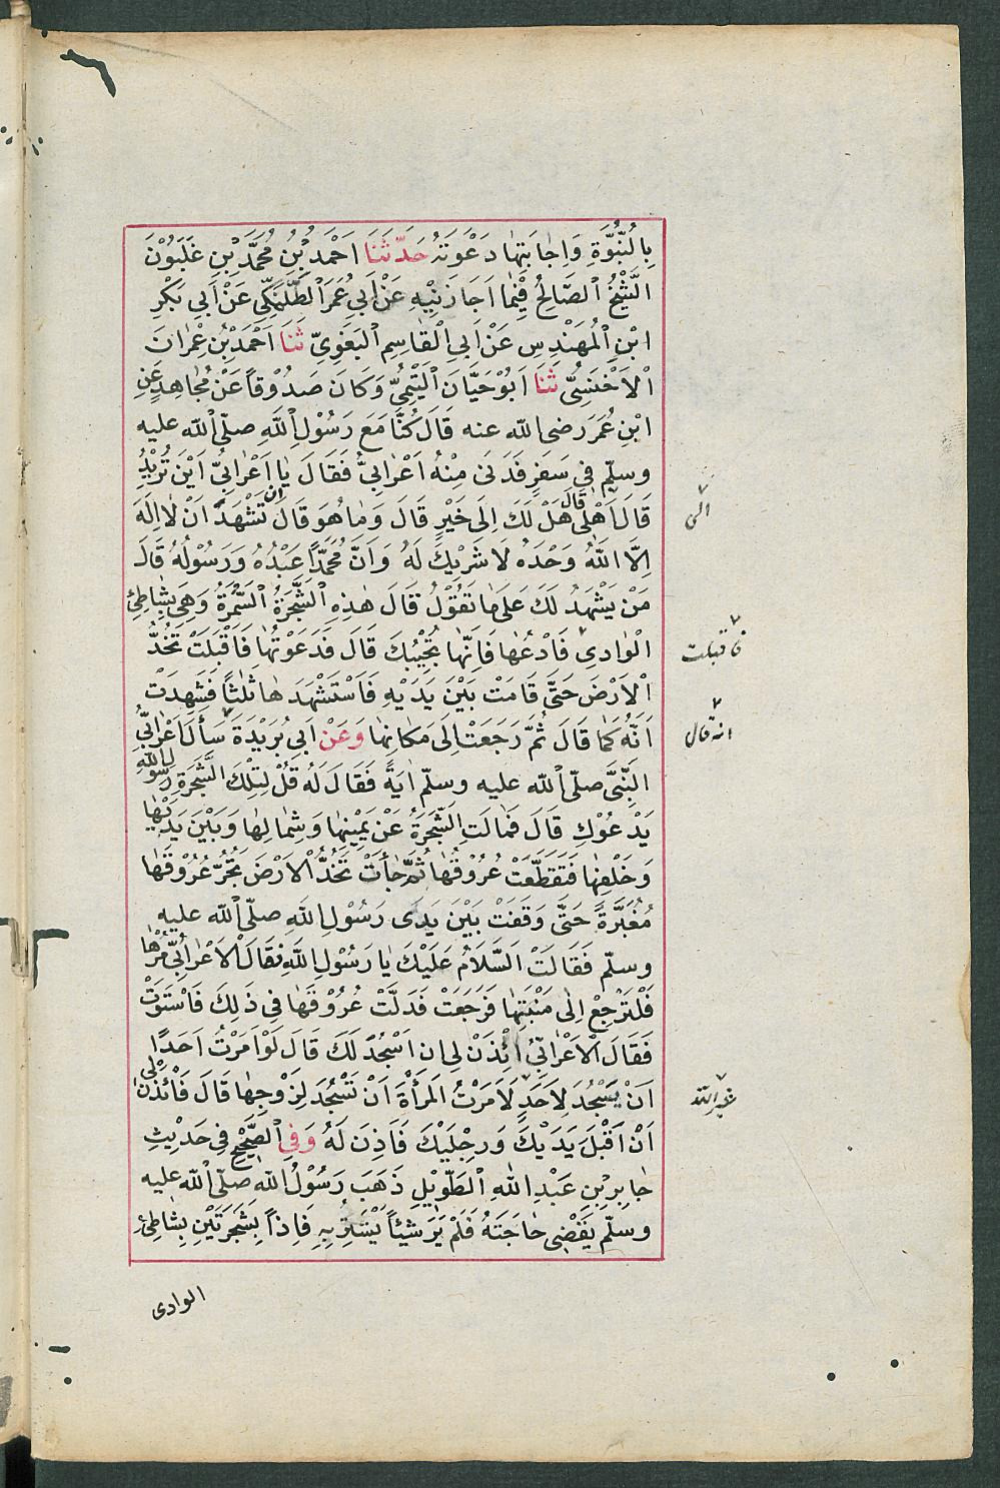 بِالنُّبُّوَّةِ وَاِجَابَتِهَا دَعْوَتَهُ حَدَّثَنَا اَحْمَدُ بْنُ مُحَمَّدِ بْنِ غَلْبُوْنَ
الشَّيْخُ الصَّالِحُ فِيْمَا اَجَازَنِيْهِ عَنْ اَبِي عُمَرَ الطَّلَمَنْكِيِّ عَنْ اَبِي بَكْرِ
ابْنِ الْمُهَنْدِسِ عَنْ اَبِي الْقَاسِمِ الْبَغَوِيِّ ثَنَا اَحْمَدُ بْنُ عِمْرَانَ
الْاَخْنَسِيُّ ثَنَا اَبُوْ حَيَّانَ التَّيْمِيُّ وَكَانَ صَدُوْقًا عَنْ مُجَاهِدٍ عَنِ
ابْنِ عُمَرَ رضى الله عنه قَالَ كُنَّا مَعَ رَسُوْلِ اللهِ صلّى الله عليه
وسلّم فِي سَفَرٍ فَدَنَى مِنْهُ اَعْرَابِيٌّ فَقَالَ يَا اَعْرَابِيُّ اَيْنَ تُرِيْدُ
قَالَ اَهْلِى قَالَ هَلْ لَكَ اِلَى خَيْرٍ قَالَ وَمَا هُوَ قَالَ اَنْ تَشْهَدَ اَنْ لَا اِلَهَ
الى
اِلَّا اللهُ وَحْدَهُ لَا شَرِيْكَ لَهُ وَاَنَّ مُحَمَّدًا عَبْدُهُ وَرَسُوْلُهُ قَالَ
مَنْ يَشْهَدُ لَكَ عَلَى مَا تَقُوْلُ قَالَ هَذِهِ الشَّجَرَةُ السَّمُرَةُ وَهِيَ بِشَاطِئِ
الْوَادِى فَادْعُهَا فَاِنَّهَا تُجِيْبُكَ قَالَ فَدَعَوْتُهَا فَاَقْبَلَتْ تَخُدُّ
فاقبلت
الْاَرْضَ حَتَّى قَامَتْ بَيْنَ يَدَيْهِ فَاسْتَشْهَدَهَا ثَلٰثًا فَشَهِدَتْ
اَنَّهُ كَمَا قَالَ ثُمَّ رَجَعَتْ اِلَى مَكَانِهَا وَعَنْ اَبِي بُرَيْدَةَ سَأَلَ اَعْرَابِيٌّ
انه قال
النَّبِيَّ صلّى الله عليه وسلّم اٰيَةً فَقَالَ لَهُ قُلْ لِتِلْكَ الشَّجَرَةِ رسول الله
يَدْعُوْكِ قَالَ فَمَالَتِ الشَّجَرَةُ عَنْ يَمِيْنِهَا وَشِمَالِهَا وَبَيْنَ يَدَيْهَا
وَخَلْفِهَا فَتَقَطَّعَتْ عُرُوْقُهَا ثُمَّ جَاءَتْ تَخُدُّ الْاَرْضَ تَجُرُّ عُرُوْقَهَا
مُغْبَرَّةً حَتَّى وَقَفَتْ بَيْنَ يَدَى رَسُوْلِ اللهِ صلّى الله عليه
وسلّم فَقَالَتْ اَلسَّلَامُ عَلَيْكَ يَا رَسُوْلَ اللهِ فَقَالَ الْاَعْرَابِيُّ مُرْهَا
فَلْتَرْجِعْ اِلٰى مَنْبَتِهَا فَرَجَعَتْ فَدَلَّتْ عُرُوْقَهَا فِي ذَلِكَ فَاسْتَوَتْ
فَقَالَ الْاَعْرَابِيُّ اِئْذَنْ لِي اَنْ اَسْجُدَ لَكَ قَالَ لَوْ اَمَرْتُ اَحَدًا
اَنْ يَسْجُدَ لِاَحَدٍ لَاَمَرْتُ الْمَرْأَةَ اَنْ تَسْجُدَ لِزَوْجِهَا قَالَ فَائْذَنْ لِي
غير الله
اَنْ اُقَبِّلَ يَدَيْكَ وَرِجْلَيْكَ فَاَذِنَ لَهُ وَفِي الصَّحِيْحِ فِي حَدِيْثِ
جَابِرِ بْنِ عَبْدِ اللهِ الطَّوِيْلِ ذَهَبَ رَسُوْلُ اللهِ صلّى الله عليه
وسلّم يَقْضِى حَاجَتَهُ فَلَمْ يَرَ شَيْئًا يَسْتَتِرُ بِهِ فَاِذَا بِشَجَرَتَيْنِ بِشَاطِئِ
الوادى